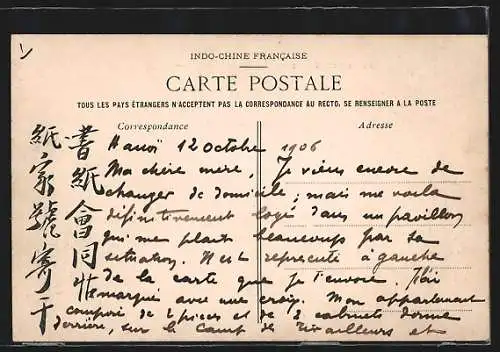 INDO-CHINE FRANÇAISE
CARTE POSTALE
TOUS LES PAYS ÉTRANGERS N'ACCEPTENT PAS LA CORRESPONDANCE AU RECTO, SE RENSEIGNER A LA POSTE
Correspondance
Adresse
Hanoï 12 octobre 1906
Ma chère mère, Je viens encore de
changer de domicile; mais me voila
définitivement logé dans un pavillon
qui me plait beaucoup par sa
situation. Il est représenté à gauche
de la carte que je t'envoie. J'ai
marqué avec une croix. Mon appartement
composé de 2 pièces et de 2 cabinets donne
derrière, sur le Camp de Tirailleurs et
書紙會同
紙家號寄于